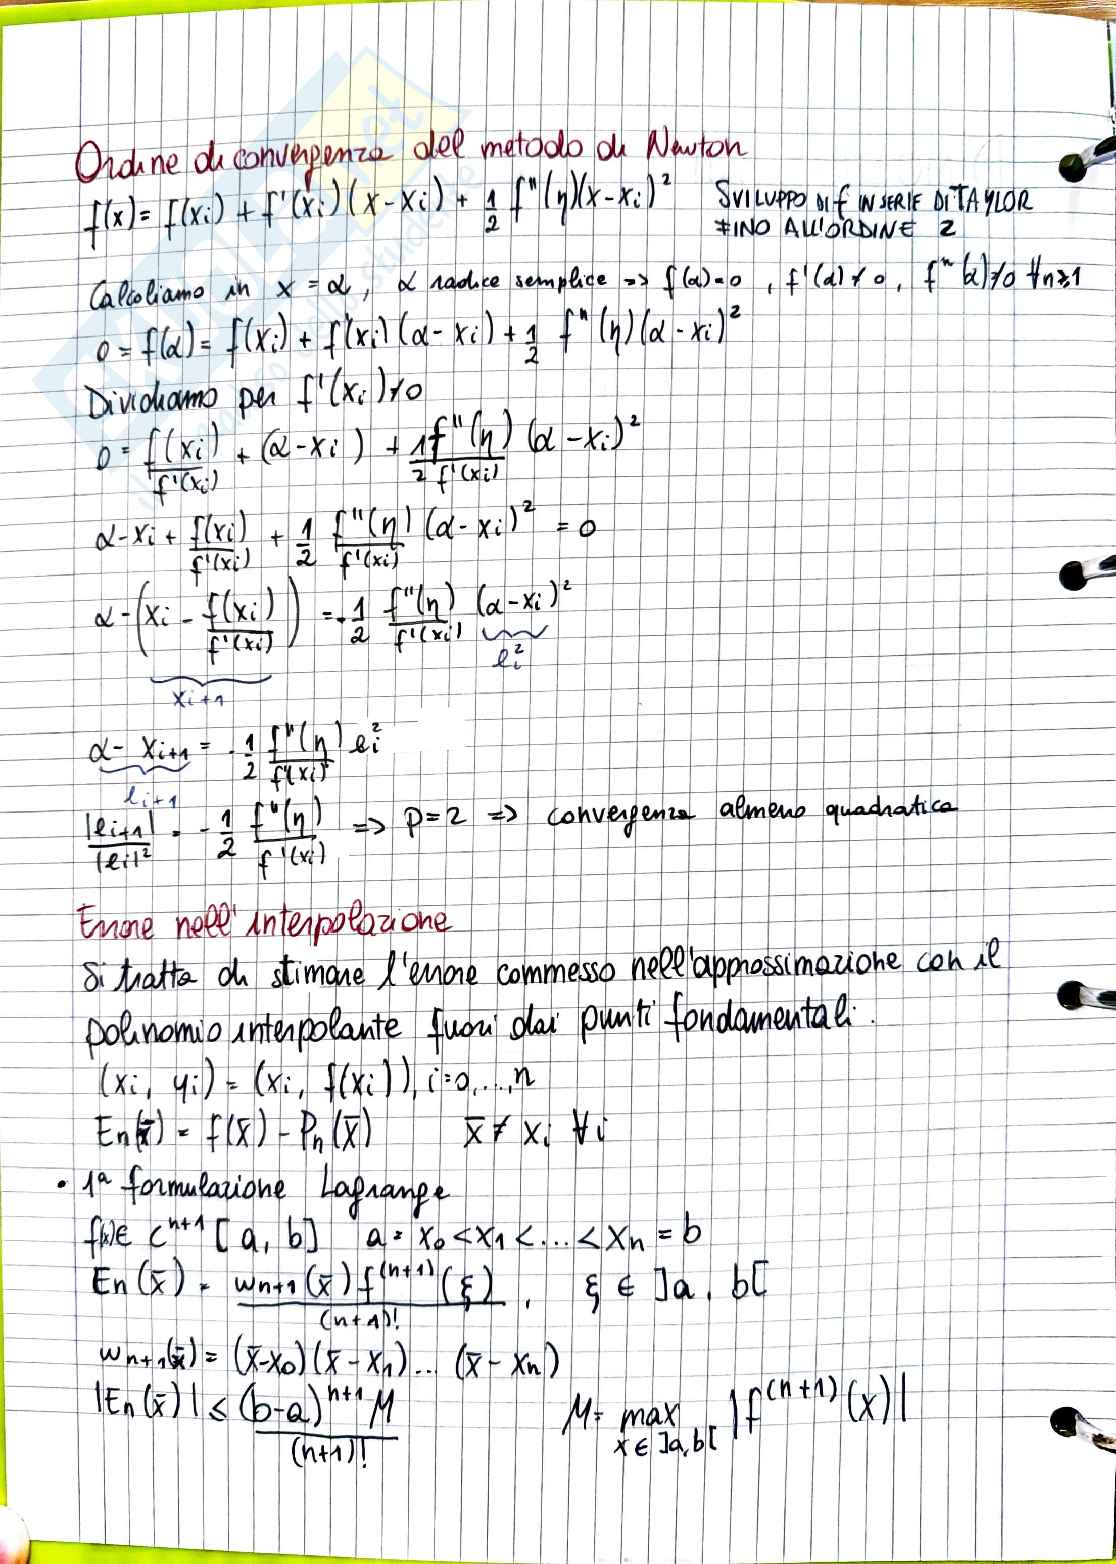 Ordine di convergenza del metodo di Newton
f(x) = f(xi) + f'(xi)(x-xi) + 1/2 f''(η)(x-xi)² SVILUPPO DI f IN SERIE DI TAYLOR
FINO ALL'ORDINE 2
Calcoliamo in x = α, α radice semplice => f(α)=0, f'(α)≠0, fⁿ(α)≠0 ∀n≥1
0 = f(α) = f(xi) + f'(xi)(α-xi) + 1/2 f''(η)(α-xi)²
Dividiamo per f'(xi)≠0
0 = f(xi)/f'(xi) + (α-xi) + 1/2 f''(η)/f'(xi) (α-xi)²
α-xi + f(xi)/f'(xi) + 1/2 f''(η)/f'(xi) (α-xi)² = 0
α-(xi - f(xi)/f'(xi)) = -1/2 f''(η)/f'(xi) (α-xi)²
ei²
xi+1
α- xi+1 = -1/2 f''(η)/f'(xi) ei²
ei+1
|ei+1|/|ei|² = -1/2 f''(η)/f'(xi) => p=2 => convergenza almeno quadratica
Errore nell'interpolazione
Si tratta di stimare l'errore commesso nell'approssimazione con il
polinomio interpolante fuori dai punti fondamentali.
(xi, yi) = (xi, f(xi)), i=0,...,n
En(x̄) = f(x̄) - Pn(x̄) x̄ ≠ xi ∀i
• 1ª formulazione Lagrange
f(x)∈ Cⁿ⁺¹ [a, b] a = x0 < x1 < ... < xn = b
En(x̄) = wn+1(x̄) f⁽ⁿ⁺¹⁾(ξ)/(n+1)!, ξ ∈ ]a, b[
wn+1(x̄) = (x̄-x0)(x̄-x1)...(x̄-xn)
|En(x̄)| ≤ (b-a)ⁿ⁺¹ M/(n+1)! M= max x∈]a,b[ |f⁽ⁿ⁺¹⁾(x)|